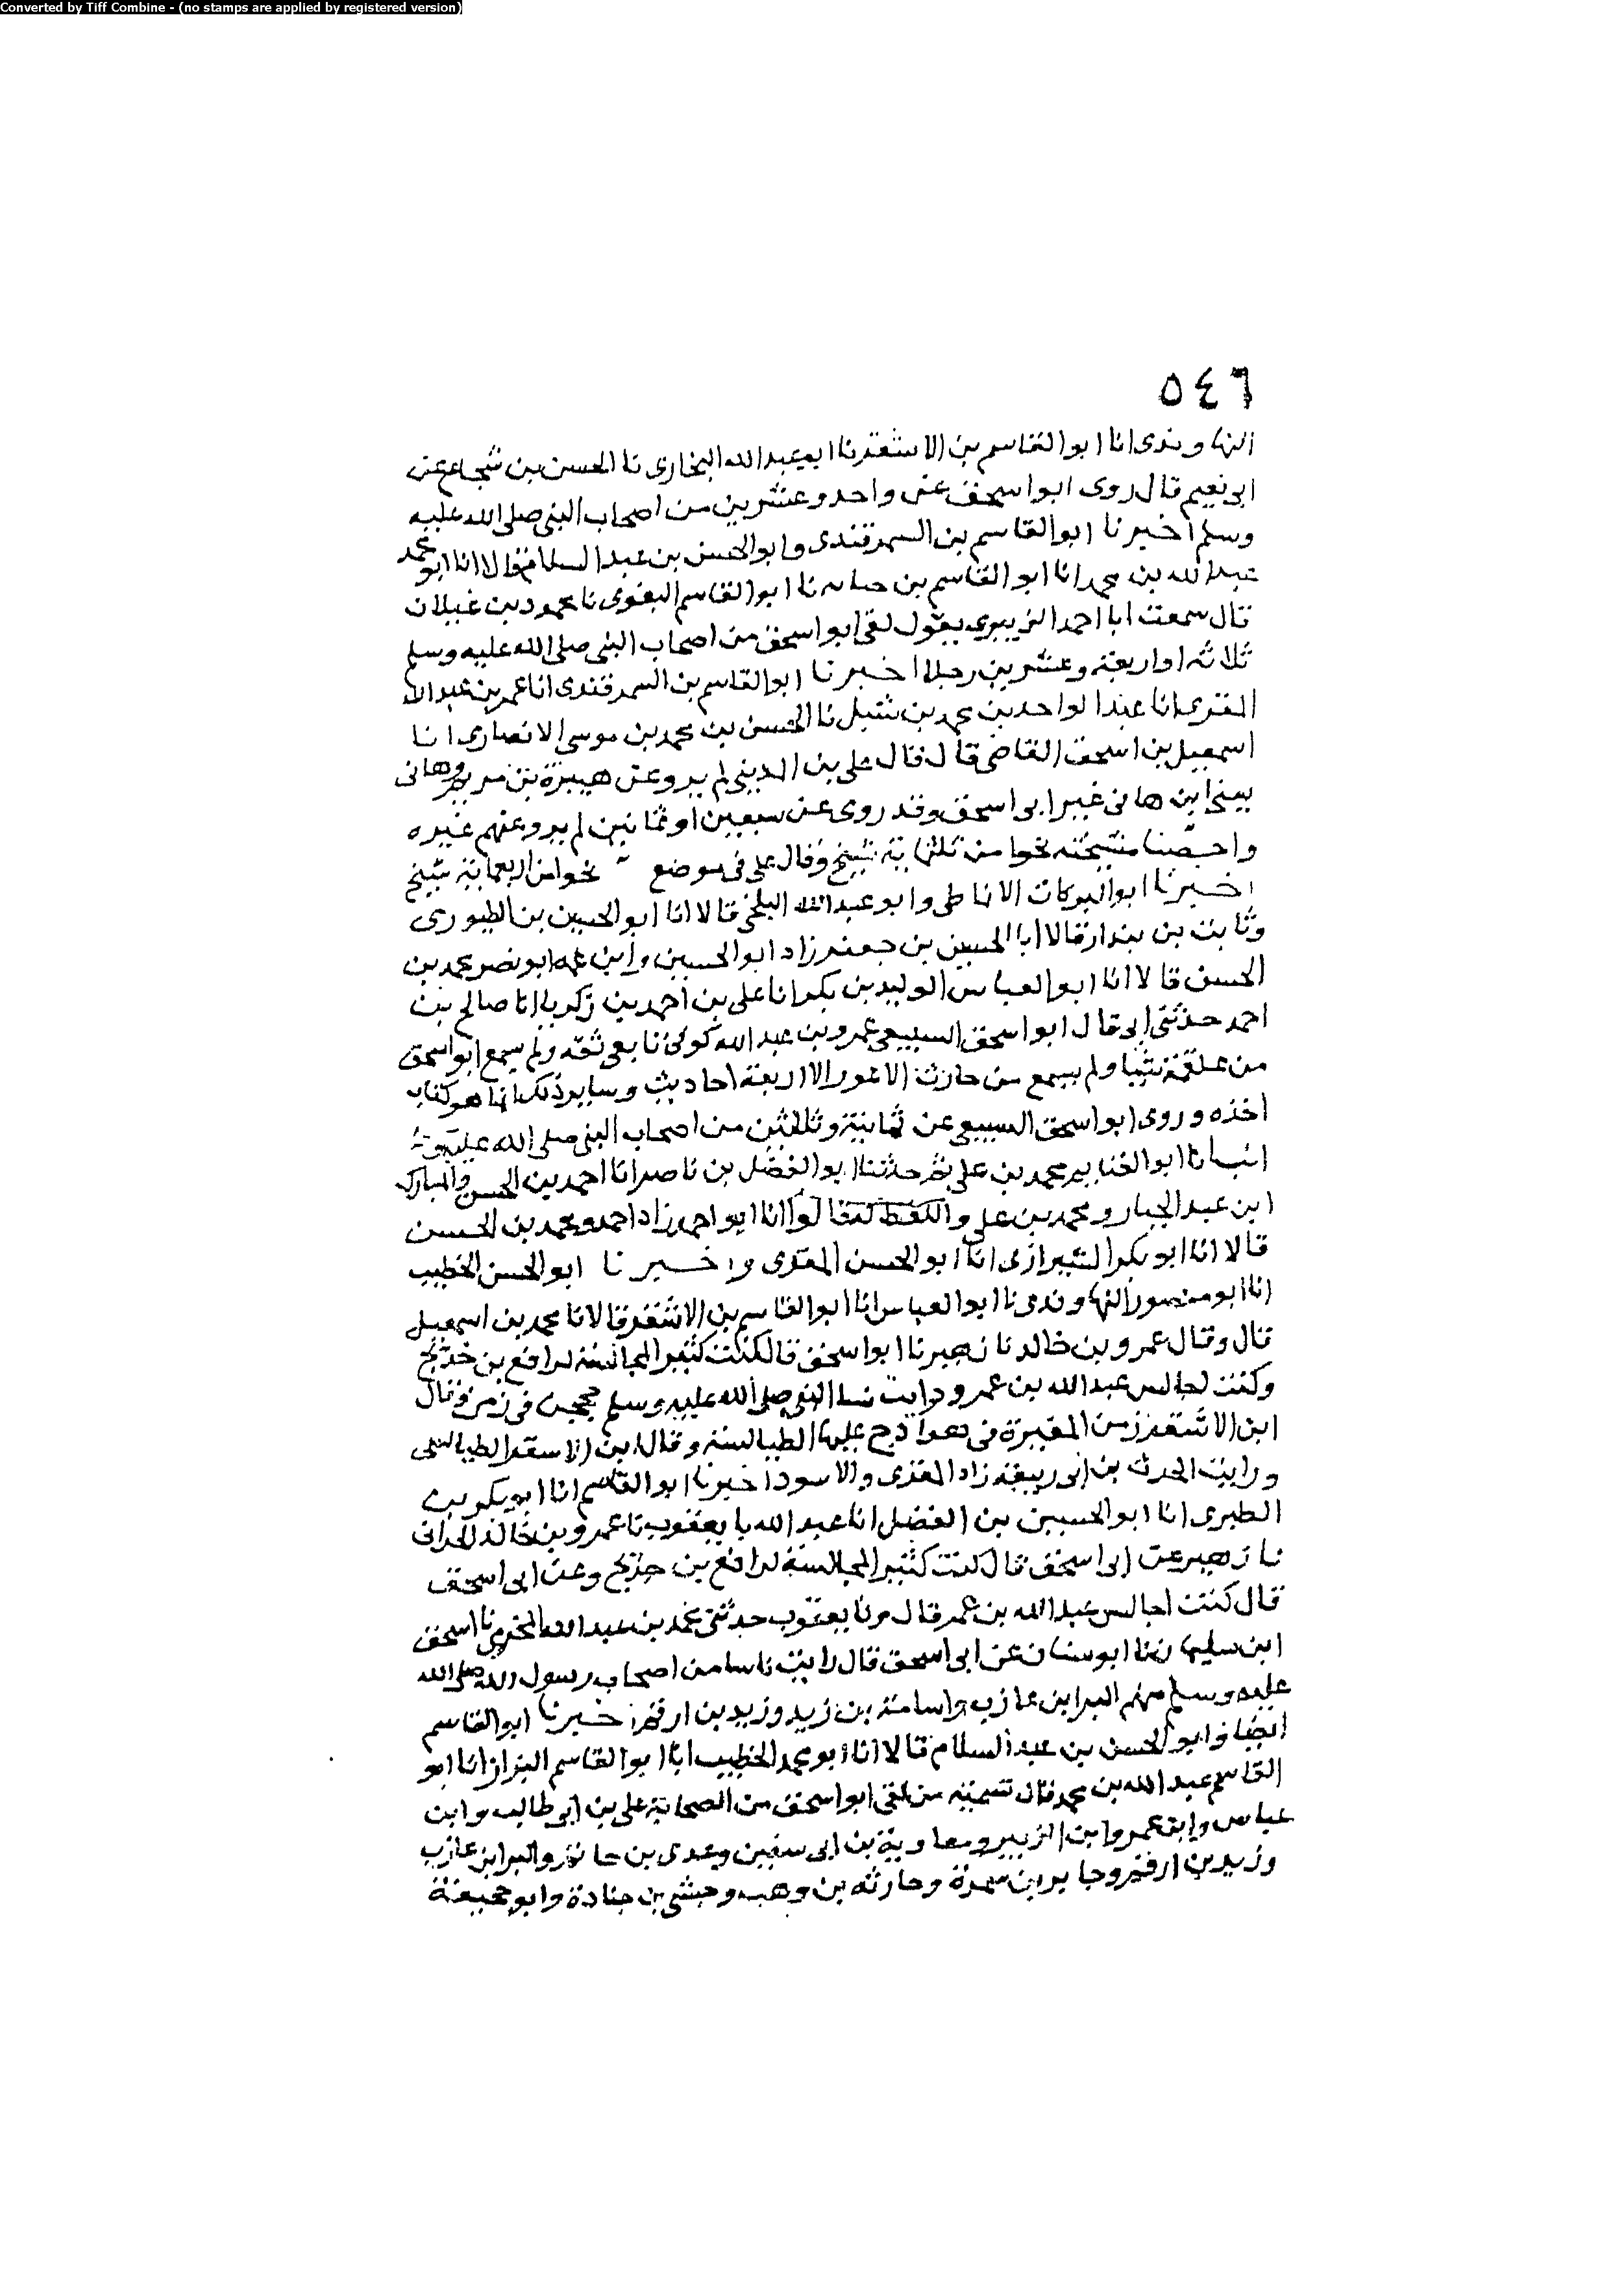 Converted by Tiff Combine - (no stamps are applied by registered version)
٥٤٦
النهاوندى انا ابو القاسم بن الاشقر نا ابو عبد الله البخارى نا الحسن بن شجاع عن
ابى نعيم قال روى ابو اسحق عن واحد وعشرين من اصحاب النبى صلى الله عليه
وسلم اخبرنا ابو القاسم بن السمرقندى وابو الحسن بن عبد السلام قالا انا ابو محمد
عبد الله بن محمد انا ابو القاسم بن حبابه نا ابو القاسم البغوى نا محمود بن غيلان
قال سمعت ابا احمد الزبيرى يقول لقى ابو اسحق من اصحاب النبى صلى الله عليه وسلم
ثلاثه او اربعة وعشرين رجلا اخبرنا ابو القاسم بن السمرقندى انا عمر بن عبد الله
المقرى انا عبد الواحد بن محمد بن شبل نا الحسن بن محمد بن موسى الانصارى انا
اسمعيل بن اسحق القاضى قال قال على بن المدينى لم يرو عن هبيرة بن مريم وهانى
يعنى ابن هانى غير ابى اسحق وقد روى عن سبعين او ثمانين لم يرو عنهم غيره
واحصينا مشيخته نحوا من ثلثماية شيخ وقال على فى موضع نحوا من اربعماية شيخ
اخبرنا ابو البركات الانماطى وابو عبد الله البلخى قالا انا ابو الحسين بن الطيورى
وثابت بن بندار قالا انا الحسين بن جعفر زاد ابو الحسين وابن عمه ابو نصر محمد بن
الحسن قالا انا ابو العباس الوليد بن بكر انا على بن احمد بن زكريا انا صالح بن
احمد حدثنى ابى قال ابو اسحق السبيعى عمرو بن عبد الله كوفى تابعى ثقه ولم يسمع ابو اسحق
من علقمة شيا ولم يسمع من حارث الاعور الا اربعة احاديث وساير ذلك انما هو كتاب
اخذه وروى ابو اسحق السبيعى عن ثمانية وثلاثين من اصحاب النبى صلى الله عليه
انبانا ابو الغنايم محمد بن على ثم حدثنا ابو الفضل بن ناصر انا احمد بن الحسن والمبارك
ابن عبد الجبار ومحمد بن على واللفظ له قالوا انا ابو احمد زاد احمد ومحمد بن الحسن
قالا انا ابو بكر الشيرازى انا ابو الحسن المقرى واخبرنا ابو الحسن الخطيب
انا ابو منصور النهاوندى نا ابو العباس انا ابو القاسم بن الاشقر قالا نا محمد بن اسمعيل
قال وقال عمرو بن خالد نا زهير نا ابو اسحق قال كنت كثير المجالسة لرافع بن خديج
وكنت اجالس عبد الله بن عمر ورايت نسا النبى صلى الله عليه وسلم حججن فى زمن وقال
ابن الاشقر زمن المغيرة فى هوادج عليها الطيالسة وقال ابن الاشقر الطيالسى
ورايت الحرث بن ابى ربيعة زاد المقرى والاسود اخبرنا ابو القاسم انا ابو بكر بن
الطبرى انا ابو الحسين بن الفضل انا عبد الله نا يعقوب نا عمرو بن خالد الحرانى
نا زهير عن ابى اسحق قال كنت كثير المجالسة لرافع بن خديج وعن ابى اسحق
قال كنت اجالس عبد الله بن عمر قال ونا يعقوب حدثنى محمد بن عبد الله المخرمى نا اسحق
ابن سليمان نا ابو سنان عن ابى اسحق قال رايت ناسا من اصحاب رسول الله صلى الله
عليه وسلم منهم البرا بن عازب واسامة بن زيد وزيد بن ارقم اخبرنا ابو القاسم
ايضا وابو الحسن بن عبد السلام قالا انا ابو محمد الخطيب انا ابو القاسم البزاز انا ابو
القاسم عبد الله بن محمد قال تسمية من لقى ابو اسحق من الصحابة على بن ابى طالب وابن
عباس وابن عمر وابن الزبير ومعاوية بن ابى سفين وعدى بن حاتم والبرا بن عازب
وزيد بن ارقم وجابر بن سمرة وحارثه بن وهب وحبشى بن جنادة وابو جحيفة